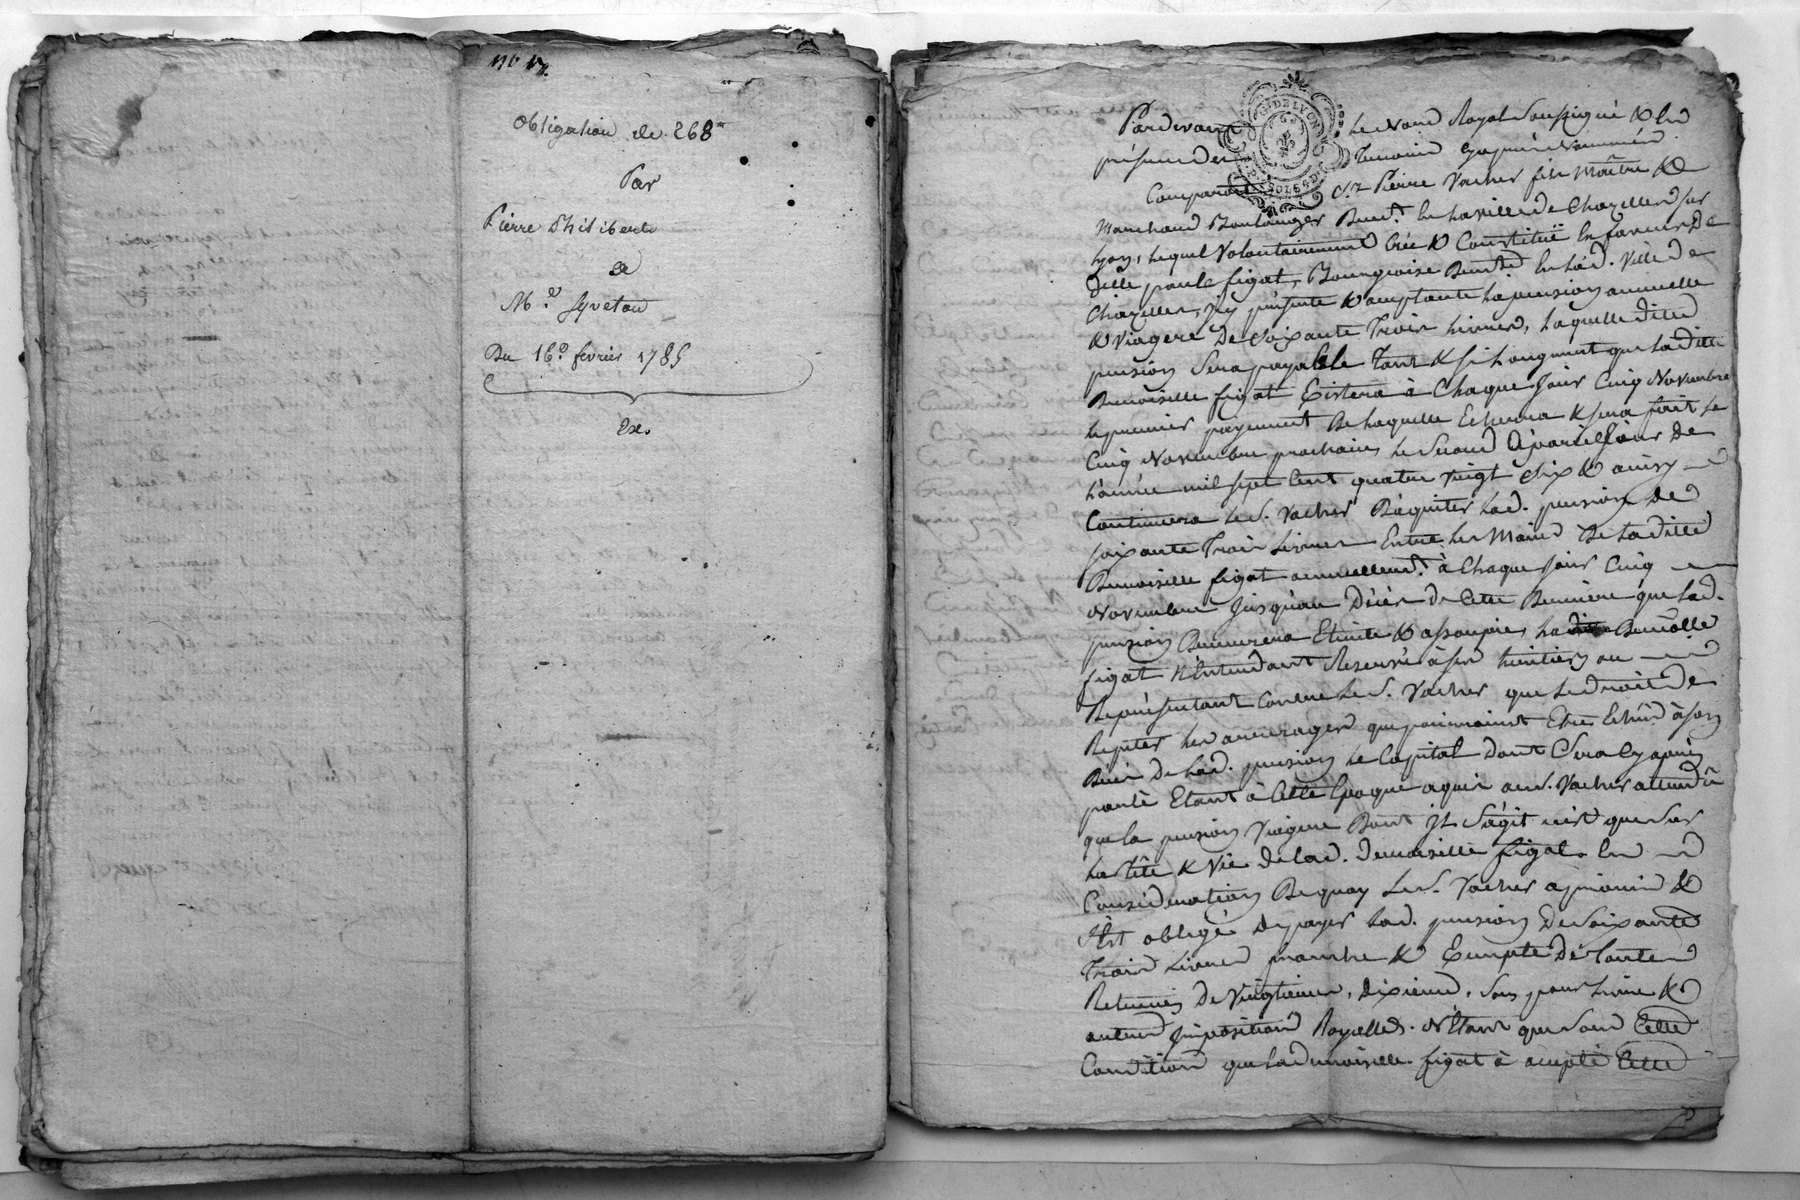 Obligation de 268ᵗᵗ
Par
Pierre Philibert
a
Mᵉ. Syveton
Du 16ᵉ. fevrier 1785
Ex.
G. DE LYON
Pardevant le Notaire Royal Soussigné & En
présence des Temoins cy après Nommés
Comparoit Sʳ. Pierre Vacher fils Maître &
Marchand Boulanger Demᵗ. En la ville de Chazelles sur
Lyon, Lequel Volontairement Crée & Constitüe En faveur de
Dlle paule figat, Bourgeoise Demᵗᵉ En lad. Ville de
Chazelles, Icy présente & acceptante la pension annuelle
& Viagere De Soixante Trois Livres, Laquelle ditte
pension Sera payable Tant & si Longment que laditte
Demoiselle figat Existera à Chaque Jour Cinq Novembre
le premier payement De laquelle Echerra & sera fait le
Cinq Novembre prochain, le Second à pareil Jour De
L'année mil sept Cent quatre Vingt Six & ainsy
Continuera le S. Vacher D'aquiter lad. pension de
soixante Trois Livres Entre les Mains De laditte
Demoiselle figat annuellemᵗ. à Chaque Jour Cinq
Novembre Jusqu'au Décès de Cette Derniere que lad.
pension Demeurera Eteinte & assoupie, la Demoᵉˡˡᵉ
figat N'Entendant Reserver à ses heritiers ou
Représentant Contre le S. Vacher que le droit de
Repeter les arrerages qui pourroient Etre Echus à son
Décès De lad. pension le Capital dont Sera Cy après
parlé Etant à Cette Epoque aquis au S. Vacher attendu
que la pension Viagere Dont Il S'agit n'est que Sur
La tête & Vie de lad. Demoiselle figat. En
Consideration De quoy Le S. Vacher a promis &
S'est obligé De payer lad. pension De Soixante
Trois Livres franche & Exempte De Toutes
Retenues de Vingtiemes, Dixiemes, Sols pour Livre &
autres Impositions Royalles. N'Etant que Sous Cette
Condition que la demoiselle figat à accepté Cette